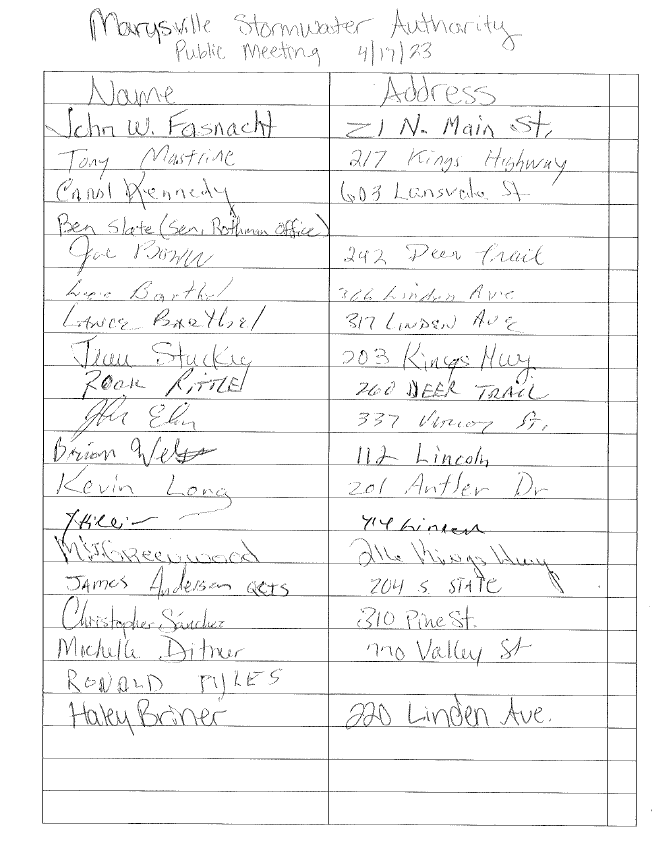 Marysville Stormwater Authority
Public Meeting 4/17/23
Name Address
John W. Fasnacht 21 N. Main St.
Tony Mastrine 217 Kings Highway
Carol Kennedy 603 Lansvale St
Ben Slate (Sen. Rothman office)
Joe 242 Deer Trail
Barthel 366 Linden Ave
Lance Barthel 317 Linden Ave
Jean Stuckey 203 Kings Hwy
260 DEER TRAIL
337 St.
Brian 112 Lincoln
Kevin Long 201 Antler Dr
Linden
Greenwood Kings Hwy
James Anderson 204 S. STATE
Christopher Sánchez 310 Pine St.
Michelle Ditmer 770 Valley St
RONALD
Haley Briner 220 Linden Ave.